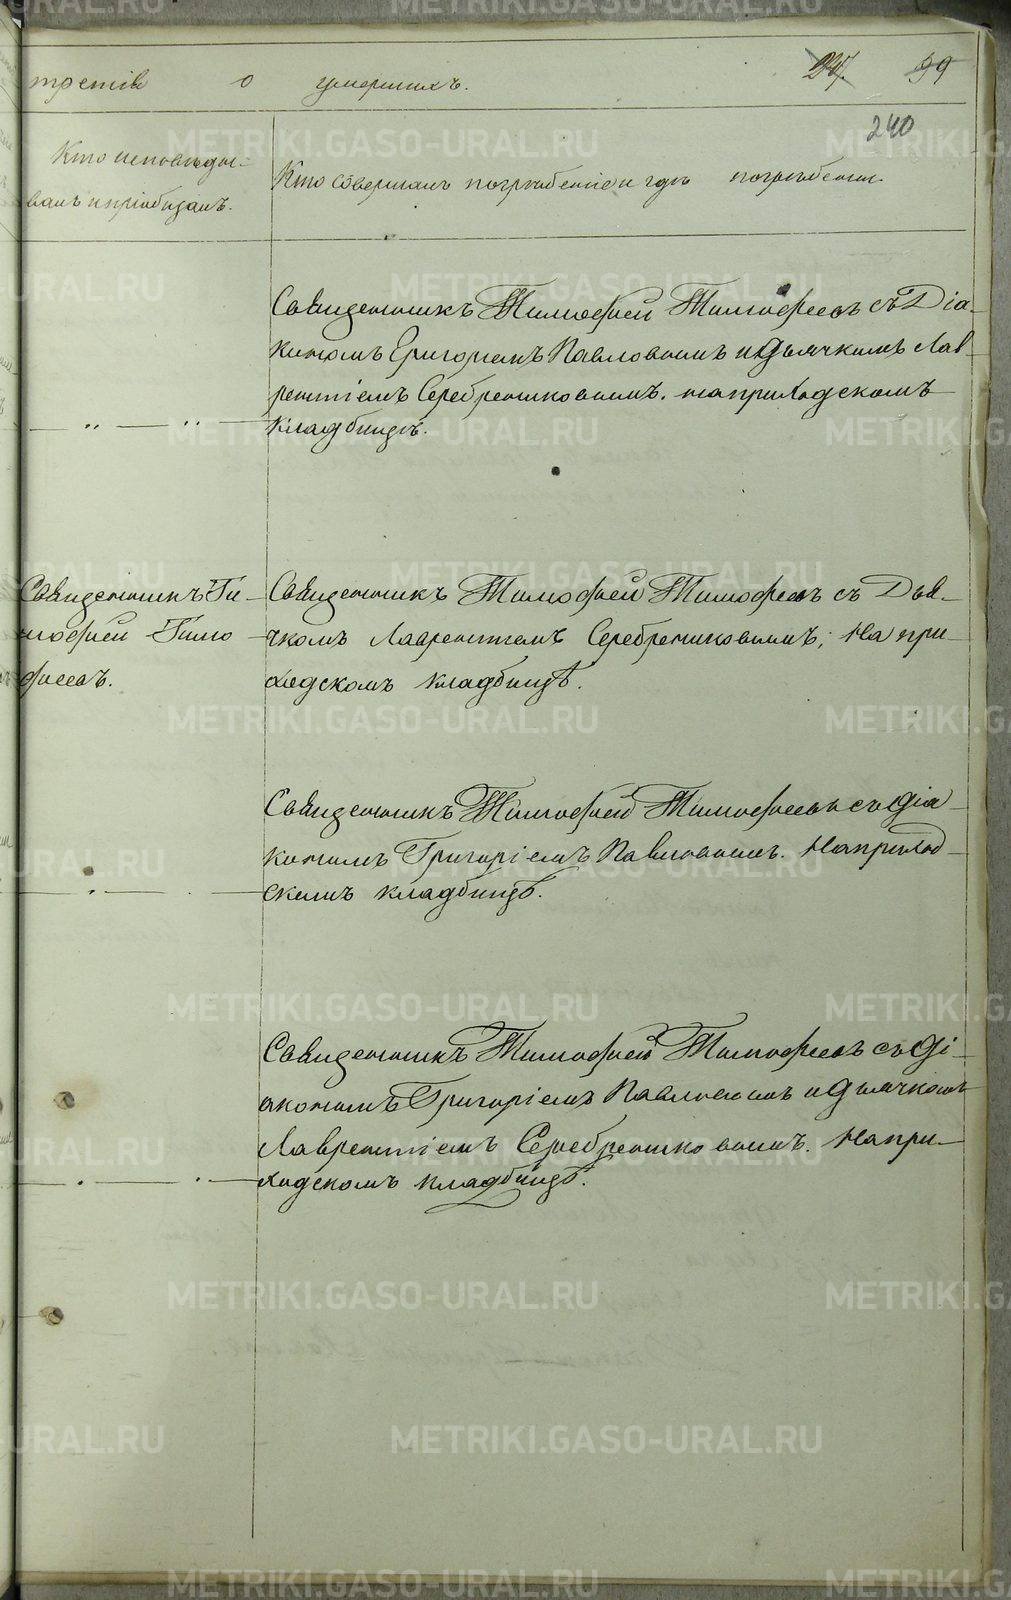 третія о умершихъ. 247. 99
240
Кто исповѣды-
валъ и пріобщалъ.
Кто совершалъ погребеніе и гдѣ погребены.
Священникъ Тимофей Тимофеевъ съ Діа-
кономъ Григоріемъ Павловымъ и Дьячкомъ Лав-
рентіемъ Серебренниковымъ. на приходскомъ
кладбищѣ.
Священникъ Ти-
мофей Тимо-
феевъ.
Священникъ Тимофей Тимофеевъ съ Дья-
чкомъ Лаврентіемъ Серебрениковымъ; На при-
ходскомъ кладбищѣ.
Священникъ Тимофей Тимофеевъ съ Діа-
кономъ Григоріемъ Павловымъ. На приход-
скомъ кладбищѣ.
Священникъ Тимофей Тимофеевъ съ Ді-
акономъ Григоріемъ Павловымъ и Дьячкомъ
Лаврентіемъ Серебренниковымъ. На при-
ходскомъ кладбищѣ.
METRIKI.GASO-URAL.RU